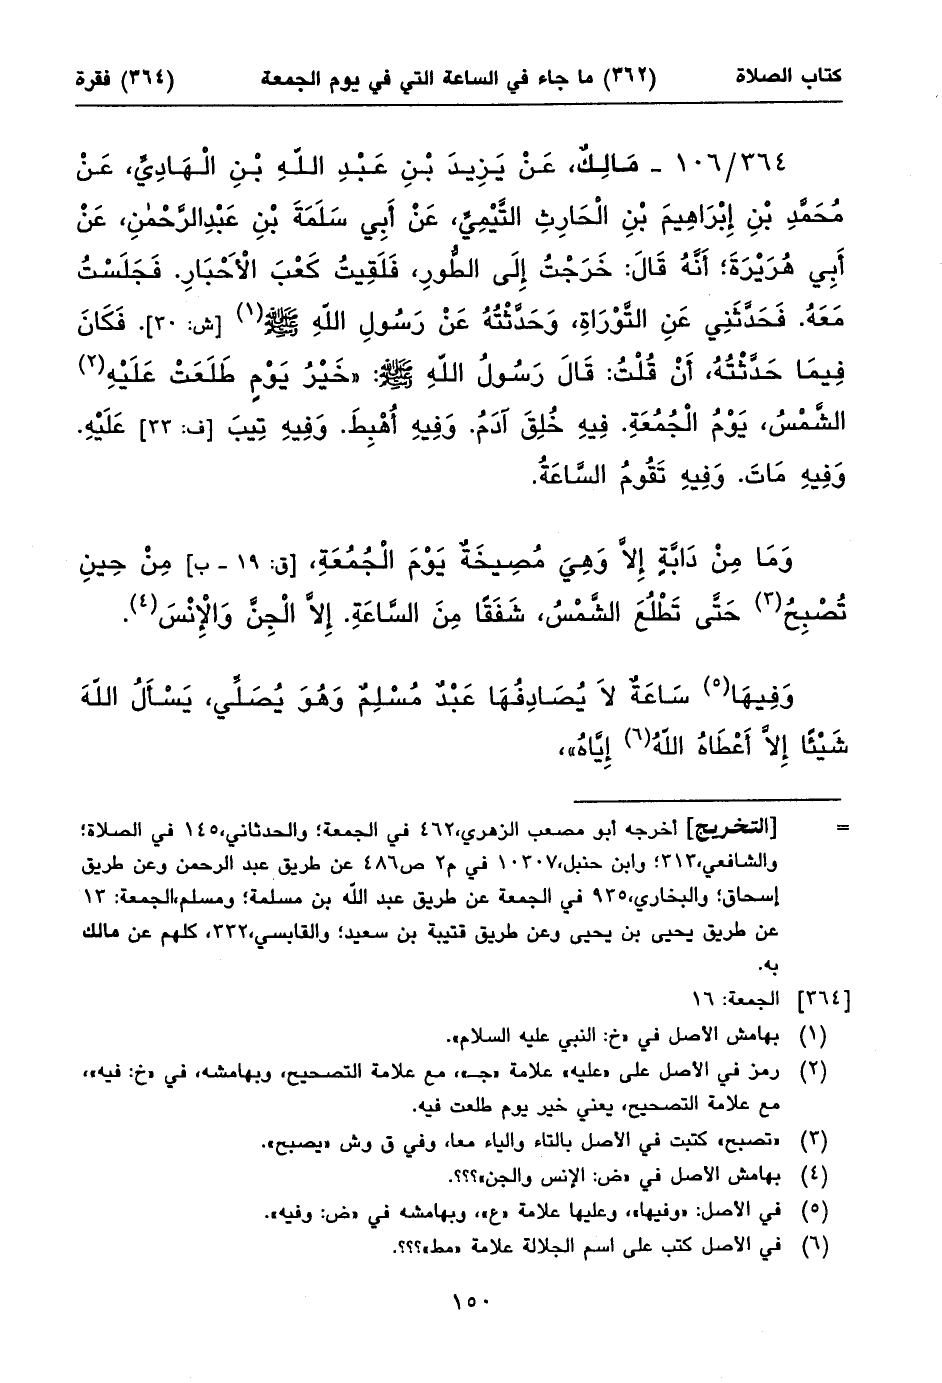 كتاب الصلاة (٣٦٢) ما جاء في الساعة التي في يوم الجمعة (٣٦٤) فقرة
١٠٦/٣٦٤ - مَالِكٌ، عَنْ يَزِيدَ بْنِ عَبْدِ اللّهِ بْنِ الْهَادِيِّ، عَنْ
مُحَمَّدِ بْنِ إِبْرَاهِيمَ بْنِ الْحَارِثِ التَّيْمِيِّ، عَنْ أَبِي سَلَمَةَ بْنِ عَبْدِالرَّحْمٰنِ، عَنْ
أَبِي هُرَيْرَةَ؛ أَنَّهُ قَالَ: خَرَجْتُ إِلَى الطُّورِ، فَلَقِيتُ كَعْبَ الْأَحْبَارِ. فَجَلَسْتُ
مَعَهُ. فَحَدَّثَنِي عَنِ التَّوْرَاةِ، وَحَدَّثْتُهُ عَنْ رَسُولِ اللّهِ ﷺ(١) [ش: ٣٠]. فَكَانَ
فِيمَا حَدَّثْتُهُ، أَنْ قُلْتُ: قَالَ رَسُولُ اللّهِ ﷺ: «خَيْرُ يَوْمٍ طَلَعَتْ عَلَيْهِ(٢)
الشَّمْسُ، يَوْمُ الْجُمُعَةِ. فِيهِ خُلِقَ آدَمُ. وَفِيهِ أُهْبِطَ. وَفِيهِ تِيبَ [ف: ٣٣] عَلَيْهِ.
وَفِيهِ مَاتَ. وَفِيهِ تَقُومُ السَّاعَةُ.
وَمَا مِنْ دَابَّةٍ إِلاَّ وَهِيَ مُصِيخَةٌ يَوْمَ الْجُمُعَةِ، [ق: ١٩ - ب] مِنْ حِينِ
تُصْبِحُ(٣) حَتَّى تَطْلُعَ الشَّمْسُ، شَفَقًا مِنَ السَّاعَةِ. إِلاَّ الْجِنَّ وَالْإِنْسَ(٤).
وَفِيهَا(٥) سَاعَةٌ لاَ يُصَادِفُهَا عَبْدٌ مُسْلِمٌ وَهُوَ يُصَلِّي، يَسْأَلُ اللّهَ
شَيْئًا إِلاَّ أَعْطَاهُ اللّهُ(٦) إِيَّاهُ»،
= [التخريج] أخرجه أبو مصعب الزهري،٤٦٢ في الجمعة؛ والحدثاني،١٤٥ في الصلاة؛
والشافعي،٣١٣؛ وابن حنبل،١٠٣٠٧ في م٢ ص٤٨٦ عن طريق عبد الرحمن وعن طريق
إسحاق؛ والبخاري،٩٣٥ في الجمعة عن طريق عبد اللّه بن مسلمة؛ ومسلم،الجمعة: ١٣
عن طريق يحيى بن يحيى وعن طريق قتيبة بن سعيد؛ والقابسي،٣٣٢، كلهم عن مالك
به.
[٣٦٤] الجمعة: ١٦
(١) بهامش الأصل في «خ: النبي عليه السلام».
(٢) رمز في الأصل على «عليه» علامة «جـ»، مع علامة التصحيح، وبهامشه، في «خ: فيه»،
مع علامة التصحيح، يعني خير يوم طلعت فيه.
(٣) «تصبح» كتبت في الأصل بالتاء والياء معا، وفي ق وش «يصبح».
(٤) بهامش الأصل في «ض: الإنس والجن»؟؟؟.
(٥) في الأصل: «وفيها»، وعليها علامة «ع»، وبهامشه في «ض: وفيه».
(٦) في الأصل كتب على اسم الجلالة علامة «مط»؟؟؟.
١٥٠